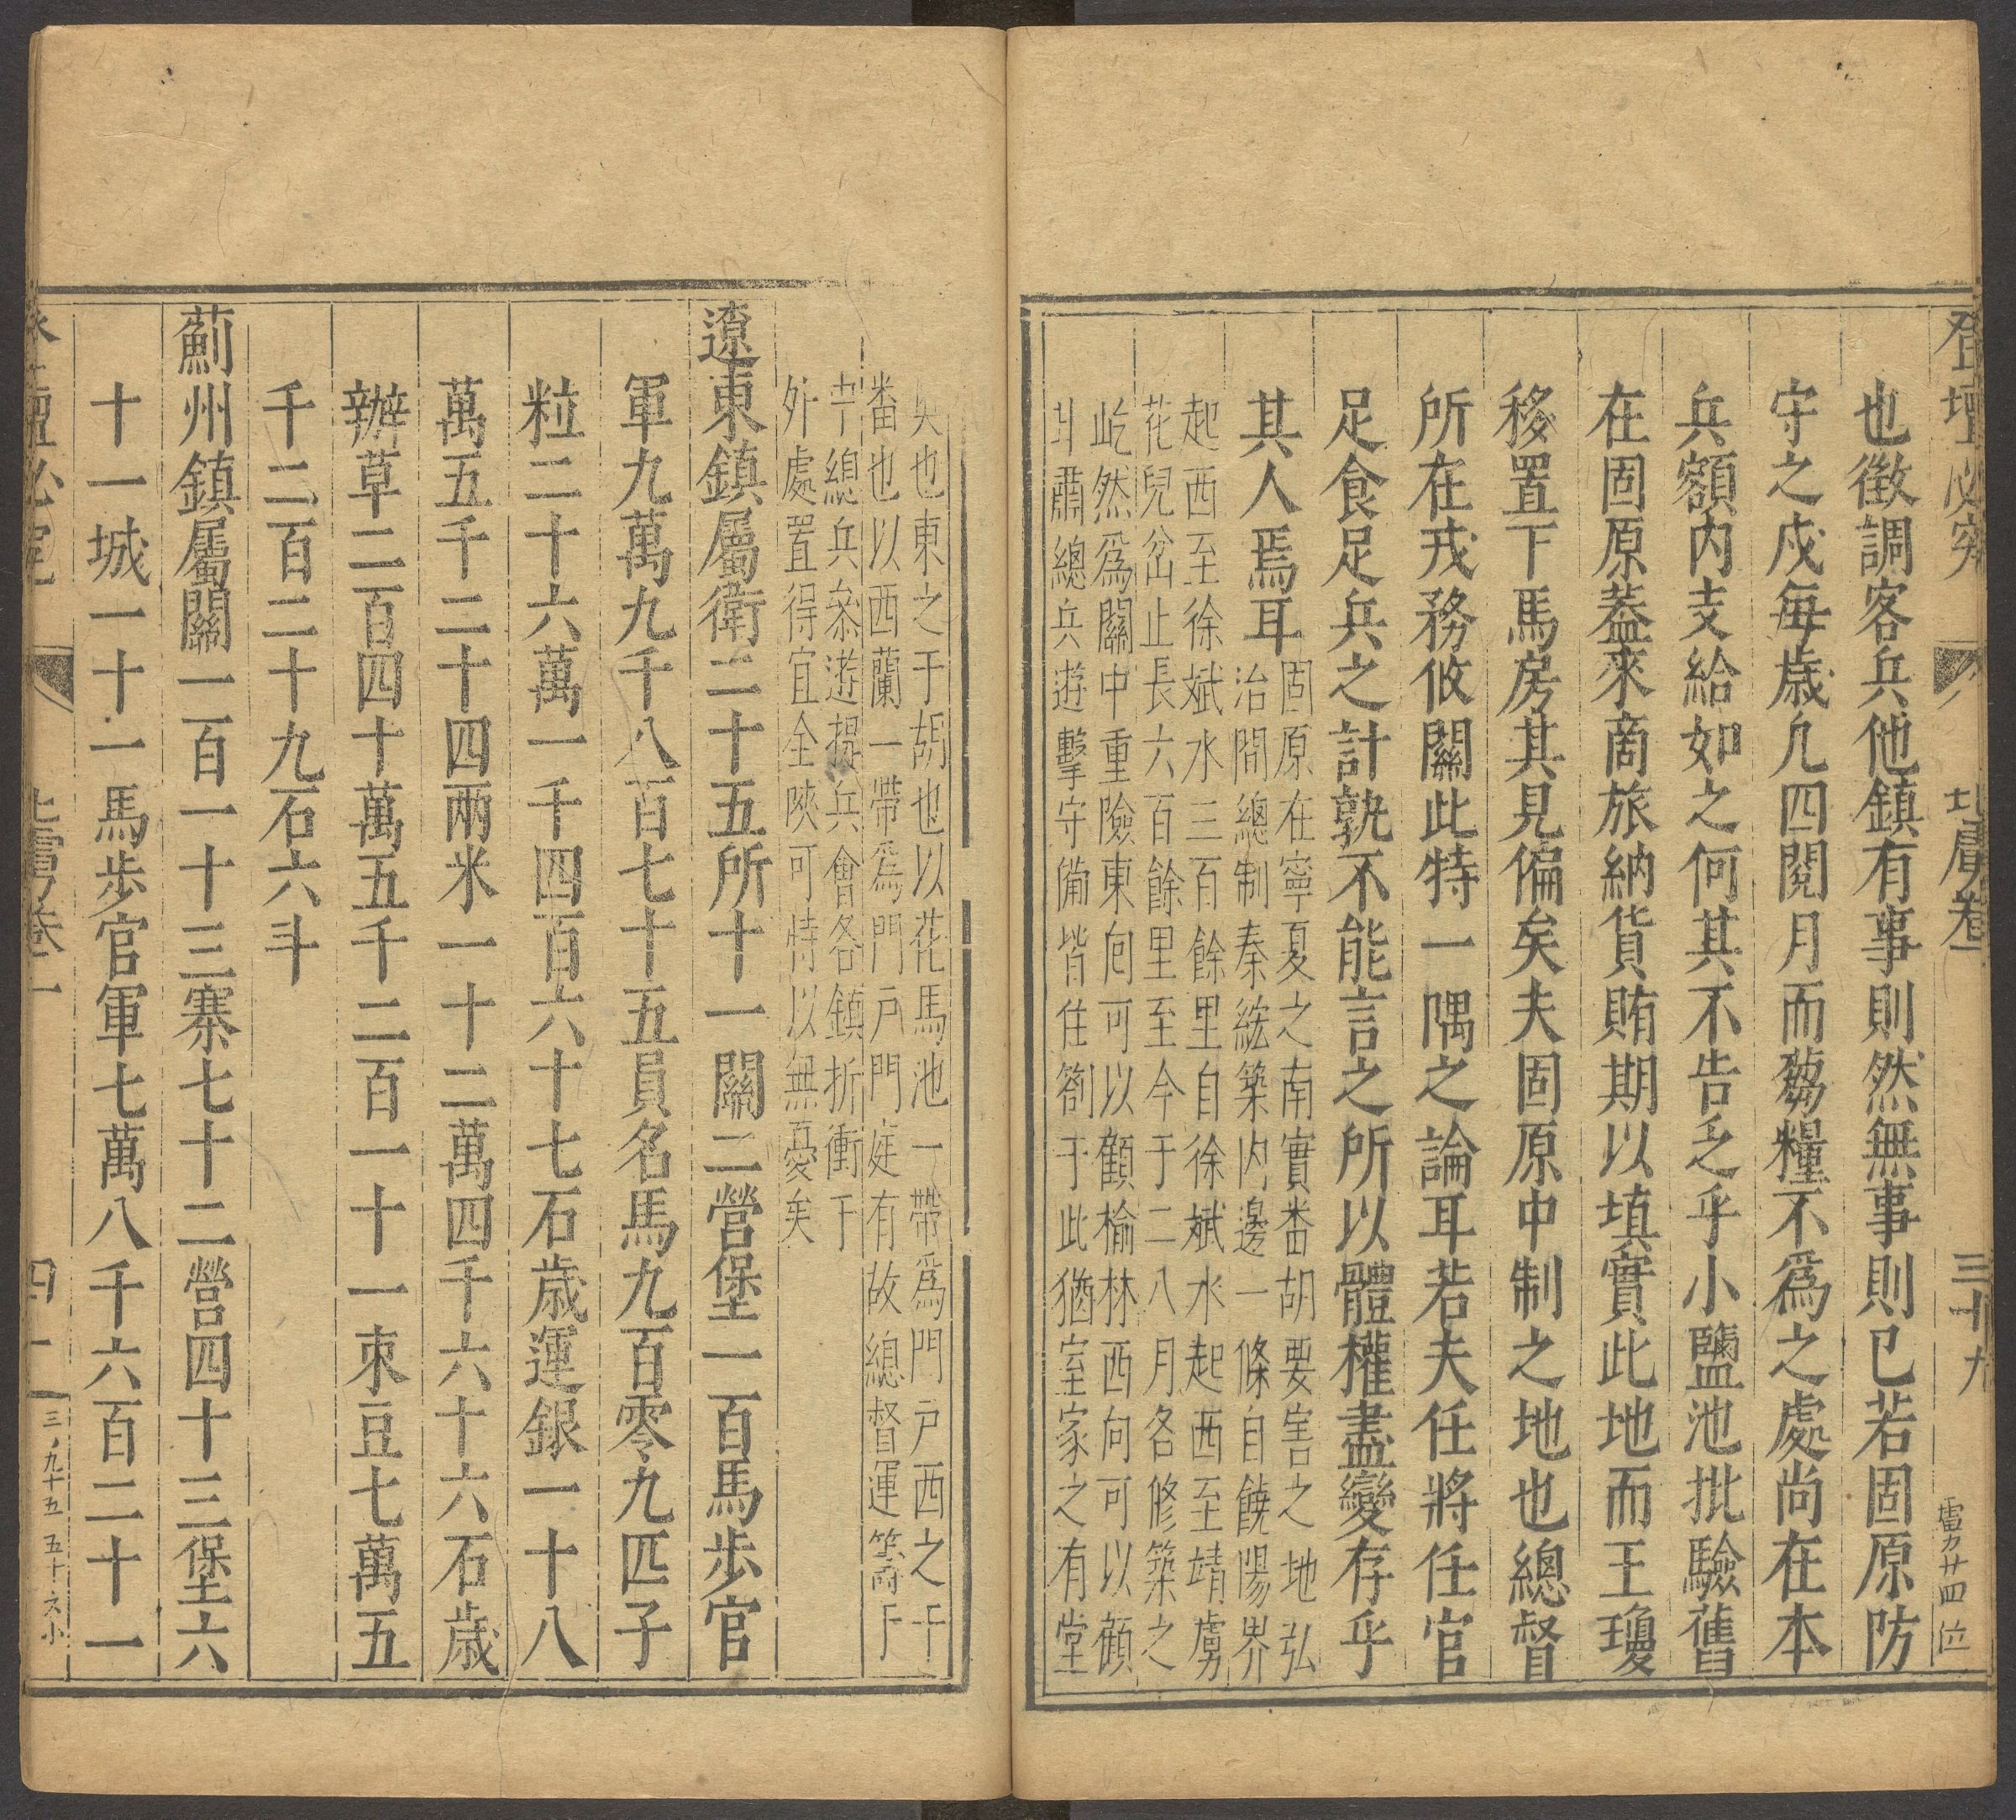 登壇必究 北虜卷 三十九
也徵調客兵他鎮有事則然無事則已若固原防
守之戍每歲凢四閱月而芻糧不爲之處尚在本
兵額内支給如之何其不告乏乎小鹽池批驗舊
在固原葢來商旅納貨賄期以填實此地而王瓊
移置下馬房其見偏矣夫固原中制之地也總督
所在戎務攸關此特一隅之論耳若夫任將任官
足食足兵之計孰不能言之所以體權盡變存乎
其人焉耳
固原在寧夏之南實番胡要害之地弘
治間總制秦紘築内邊一條自饒陽界
起西至徐斌水三百餘里自徐斌水起西至靖虜
花兒岔止長六百餘里至今于二八月各修築之
屹然爲關中重險東向可以顧榆林西向可以顧
甘肅總兵遊擊守備皆住劄于此猶室家之有堂
奥也東之于胡也以花馬池一帶爲門戸西之于
番也以西蘭一帶爲門戸門庭有故總督運籌于
中總兵叅遊提兵會各鎮折衝于
外處置得宜全陜可恃以無憂矣
遼東鎮屬衛二十五所十一關二營堡一百馬歩官
軍九萬九千八百七十五員名馬九百零九匹子
粒二十六萬一千四百六十七石歲運銀一十八
萬五千二十四兩米一十二萬四千六十六石歲
辦草二百四十萬五千二百一十一束豆七萬五
千二百二十九石六斗
薊州鎮屬關一百一十三寨七十二營四十三堡六
十一城一十一馬歩官軍七萬八千六百二十一
登壇必究 北虜卷 四十